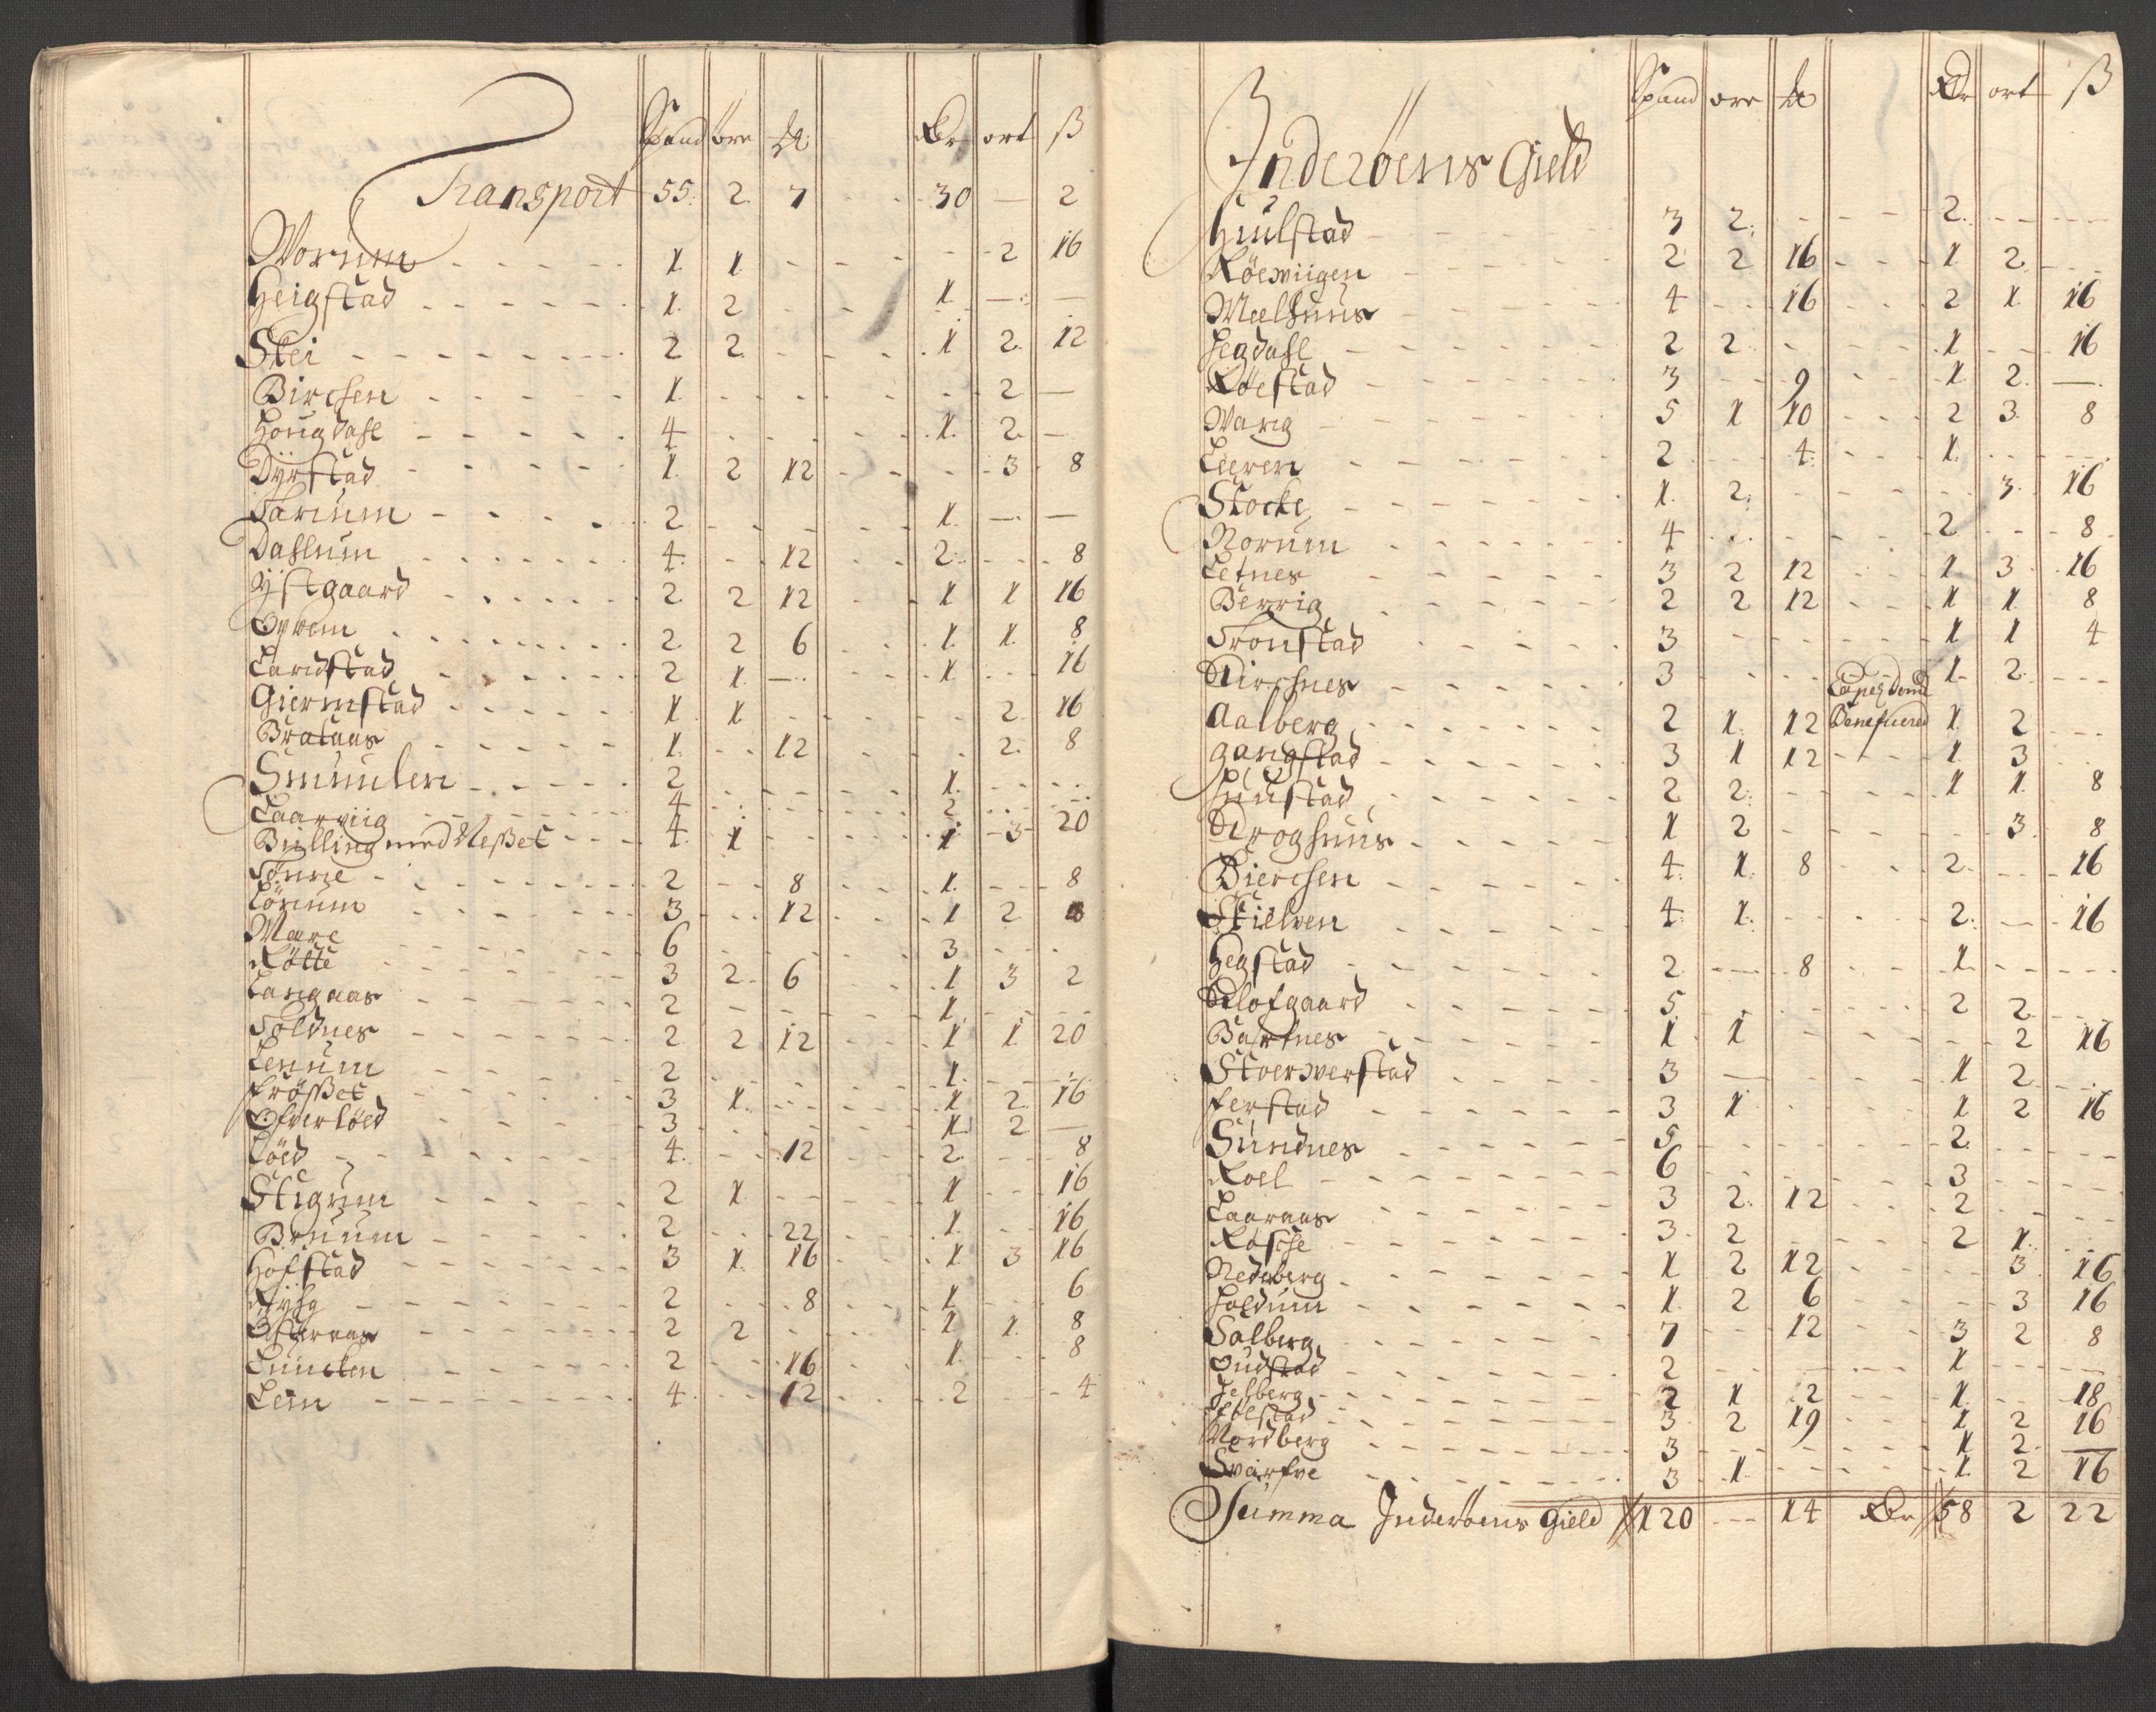 Spand öre ℔ Rdr ort ß
Transport 55. 2. 7 30 — 2
Worum 1. 1. 2 16
Heigstad 1. 2 1. — —
Stei 2 2. 1 2. 12
Birchen 1. 2 —
Hougdahl 4 1. 2. —
Dÿrstad 1. 2 12 3 8
Tarium 2 1. — —
Dahlum 4. 12 2. 8
Ystgaard 2. 2 12 1 1 16
Oprem 2. 2 6 1. 1. 8
Landstad 2 1. — 1 16
Giermstad 1. 1 2. 16
Brataas 1. 12 2. 8
Smuulen 2 1.
Laarviig 4 2
Bulling med Neßet 4. 1 1. 3 20
Tönne 2 8 1. 8
Lörum 3 12 1 2 8
Mære 6 3
Rötte 3 2. 6 1 3 2
Langaas 2 1.
Toldnes 2 2 12 1 1 20
Lenum 2 1.
Frößet 3 1. 1 2. 16
Ofverlöed 3 1. 2 —
Löed 4. 12 2. 8
Stigum 2 1 1 16
Bruum 2 22 1. 16
Hofstad 3 1. 16 1. 3 16
2 8 1 6
Ofteraas 2 2 1 1. 8
Lunclen 2 16 1. 8
Lem 4. 12 2 4
Spand öre ℔ Rdr ort ß
Inderöens Gield
Hiulstad 3 2. 2.
Röewiigen 2 2 16 1 2.
Melhuus 4 16 2 1. 16
Hegdahl 2 2 1 16
Röestad 3 9 1 2. —
Wang 5 1 10 2 3. 8
Leeren 2 4. 1.
Stocke 1. 2. 3. 16
Norum 4 2 8
Letnes 3 2 12 1 3 16
Berrig 2 2 12 1 1. 8
Tronstad 3 1 1 4
Kirchnes 3 1 2.
Aalberg 2 1. 12 Capel dom Beneficered 1. 2
Gangstad 3 1 12 1. 3
Huustad 2 2. 1 1. 8
Kroghuus 1 2 3. 8
Bierchen 4. 1. 8 2. 16
Stielven 4. 1. 2. 16
Hegstad 2 8 1.
Klofgaard 5. 2 2.
Bartnes 1. 1 2 16
Stoerwerstad 3 — 1 2
Ferstad 3 1 1 2 16
Sundnes 5 2.
Roel 6 3
Laaraas 3 2. 12 2
Rosche 3. 2 2 1.
Nedrberg 1 2 12 3. 16
Holdum 1. 2 6 3 16
Salberg 7 12 3 2 8
Oudstad 2 1
Helberg 2 1 2 1. 18
3 2 19 1. 2 16
Nordberg 3 1 2. —
Svarfve 3 1. 1. 2 16
Summa Inderöens Gield 120 — 14 Rdr 58 2 22